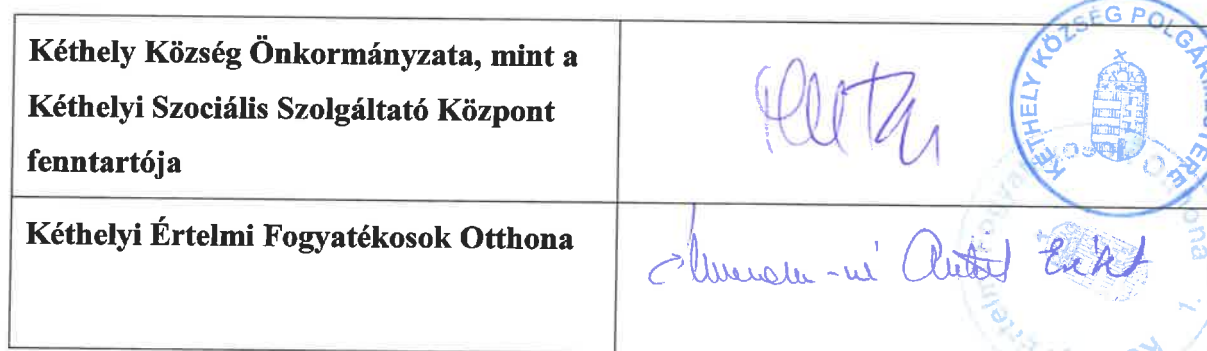 Kéthely Község Önkormányzata, mint a
Kéthelyi Szociális Szolgáltató Központ
fenntartója
KÉTHELY KÖZSÉG POLGÁRMESTERE
Kéthelyi Értelmi Fogyatékosok Otthona